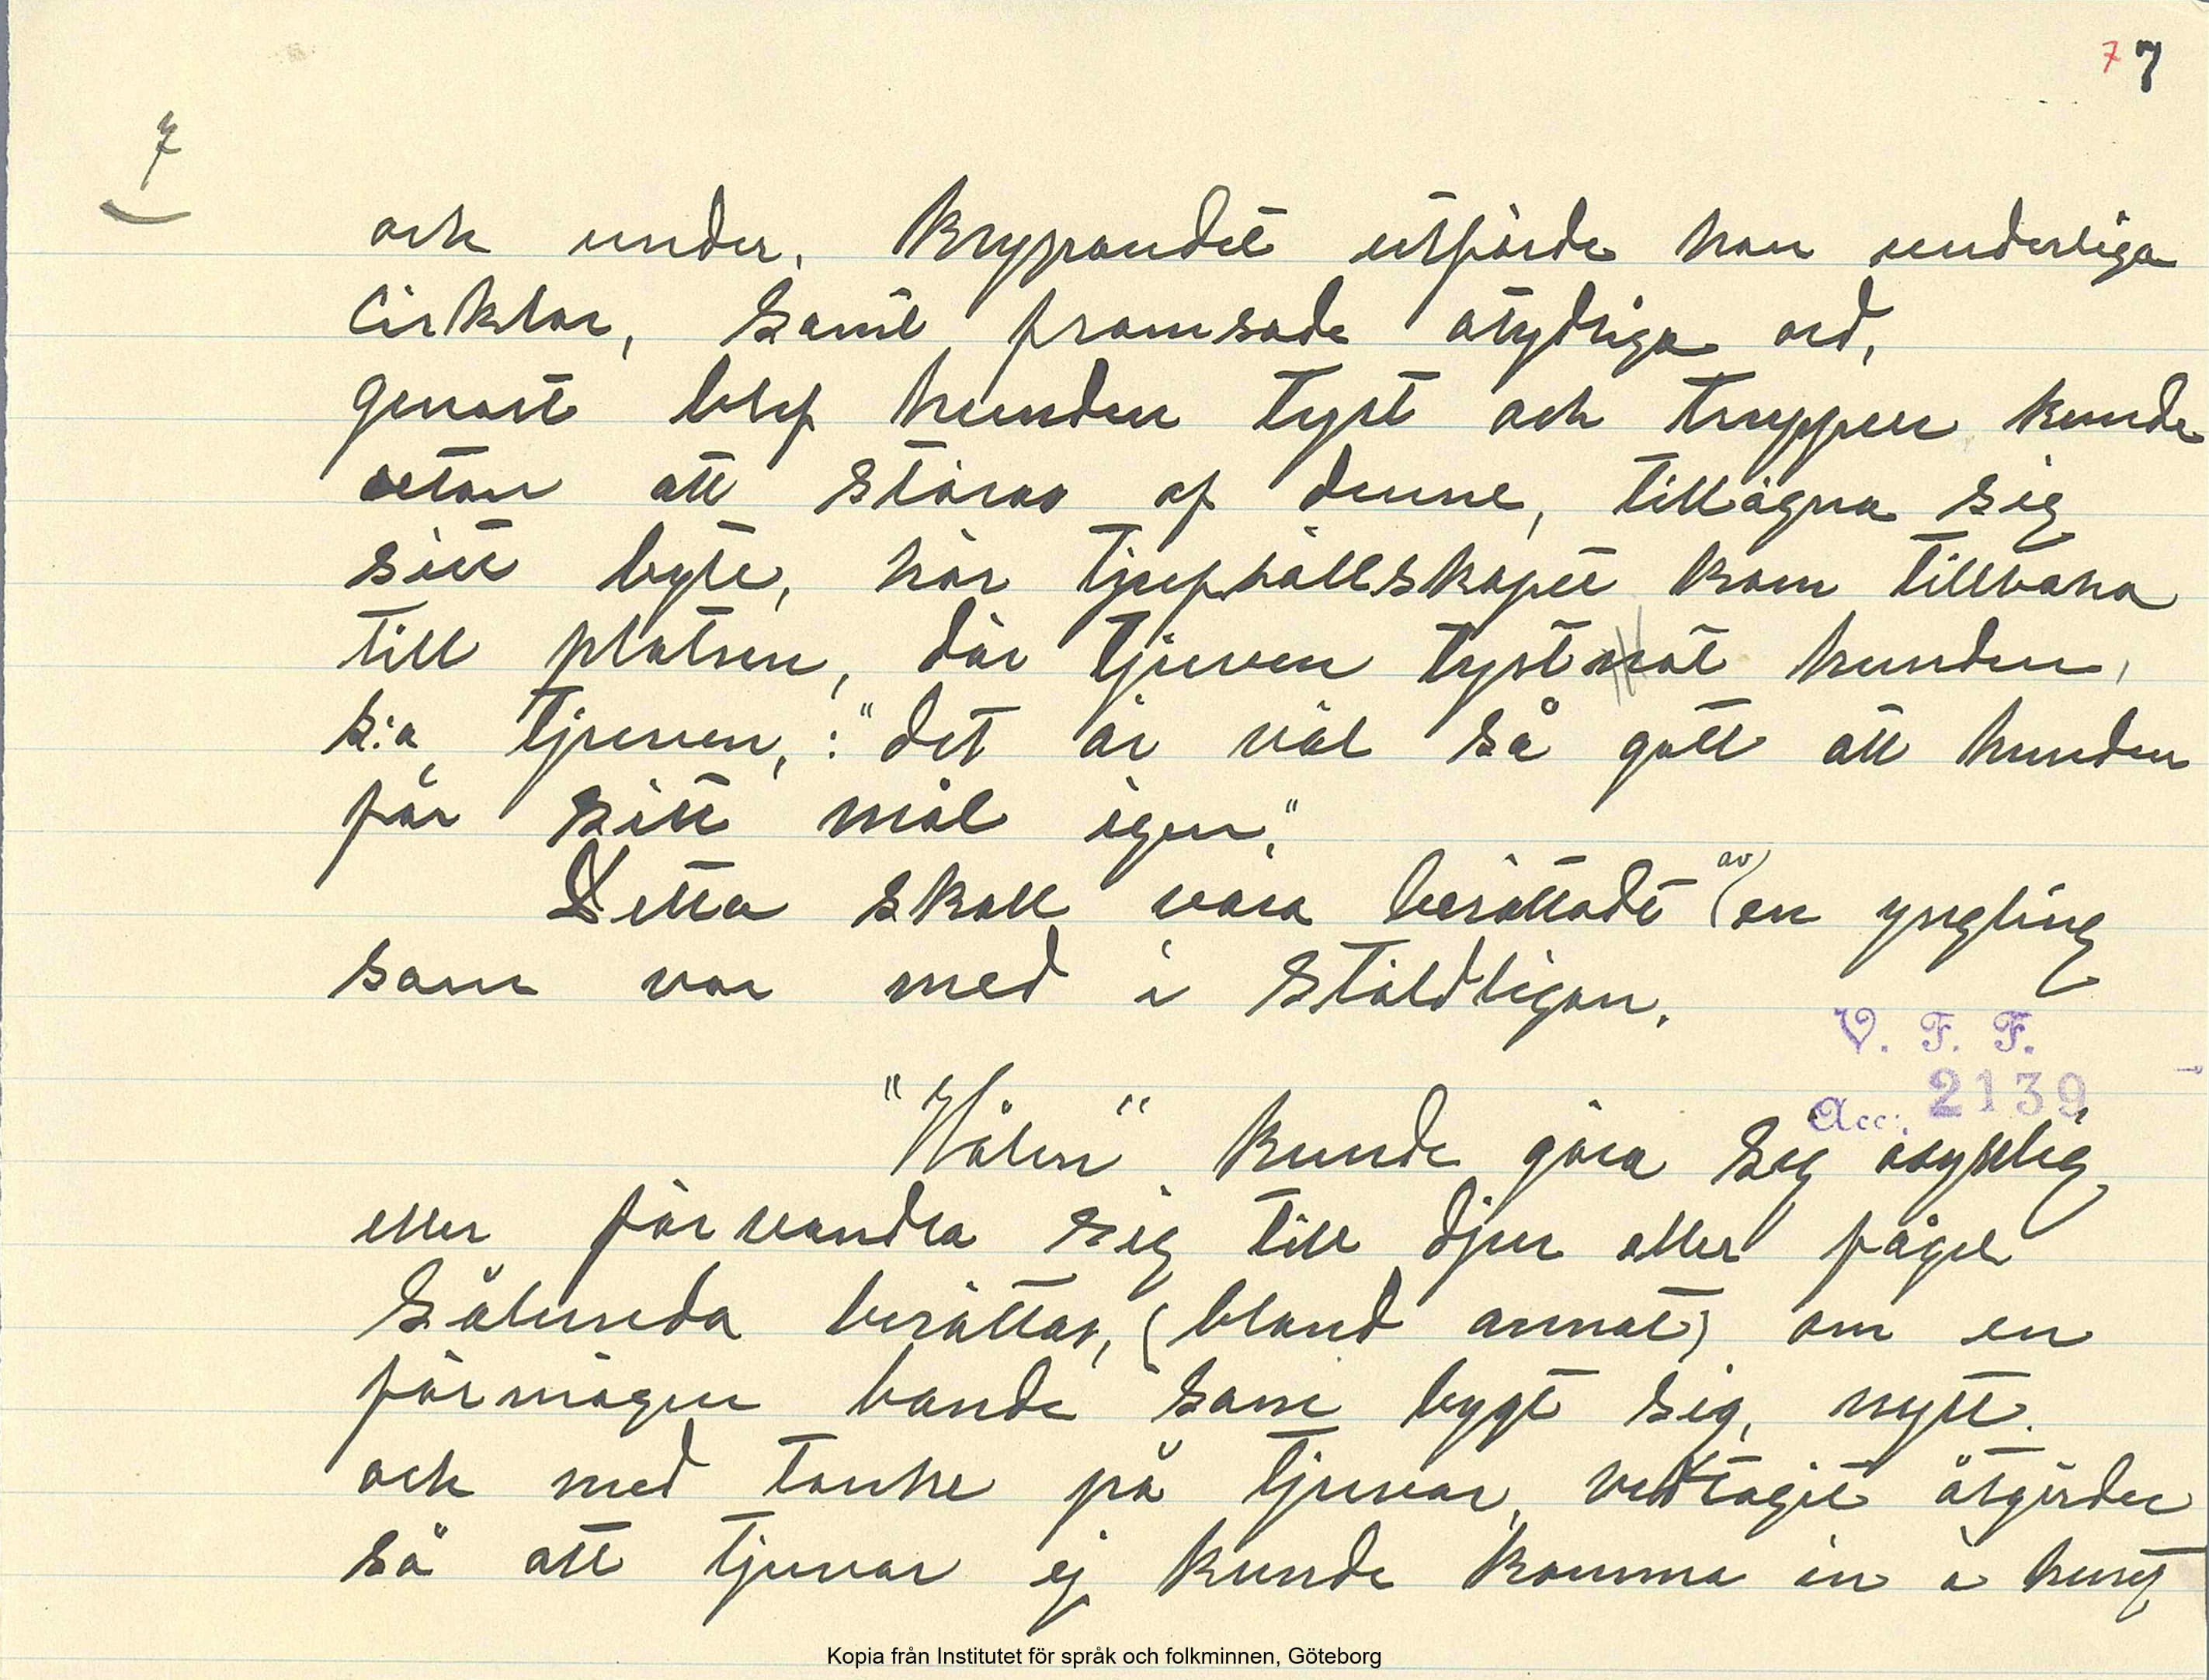 7 7
7
och under. krypandet utförde han underliga
Cirklar, samt framsade otydliga ord,
genast blef hunden tyst och truppen kunde
utan att störas af denne, tillägna sig
sitt byte, när tjufsällskapet kom tillbaka
till platsen, där tjuven tystnat hunden,
s:a tjuven, : "det är väl så gott att hunden
får sitt mål igen."
Detta skall vara berättadt av en yngling
som var med i stöldligan.
V. F. F.
Acc. 2139
"Hålen" kunde göra sig osynlig
eller förvandla sig till djur eller fågel
Sålunda berättas, (bland annat) om en
förmögen bonde som bygt sig, nytt.
och med tanke på tjuvar, vidtagit åtgärder
så att tjuvar ej kunde komma in i huset
Kopia från Institutet för språk och folkminnen, Göteborg